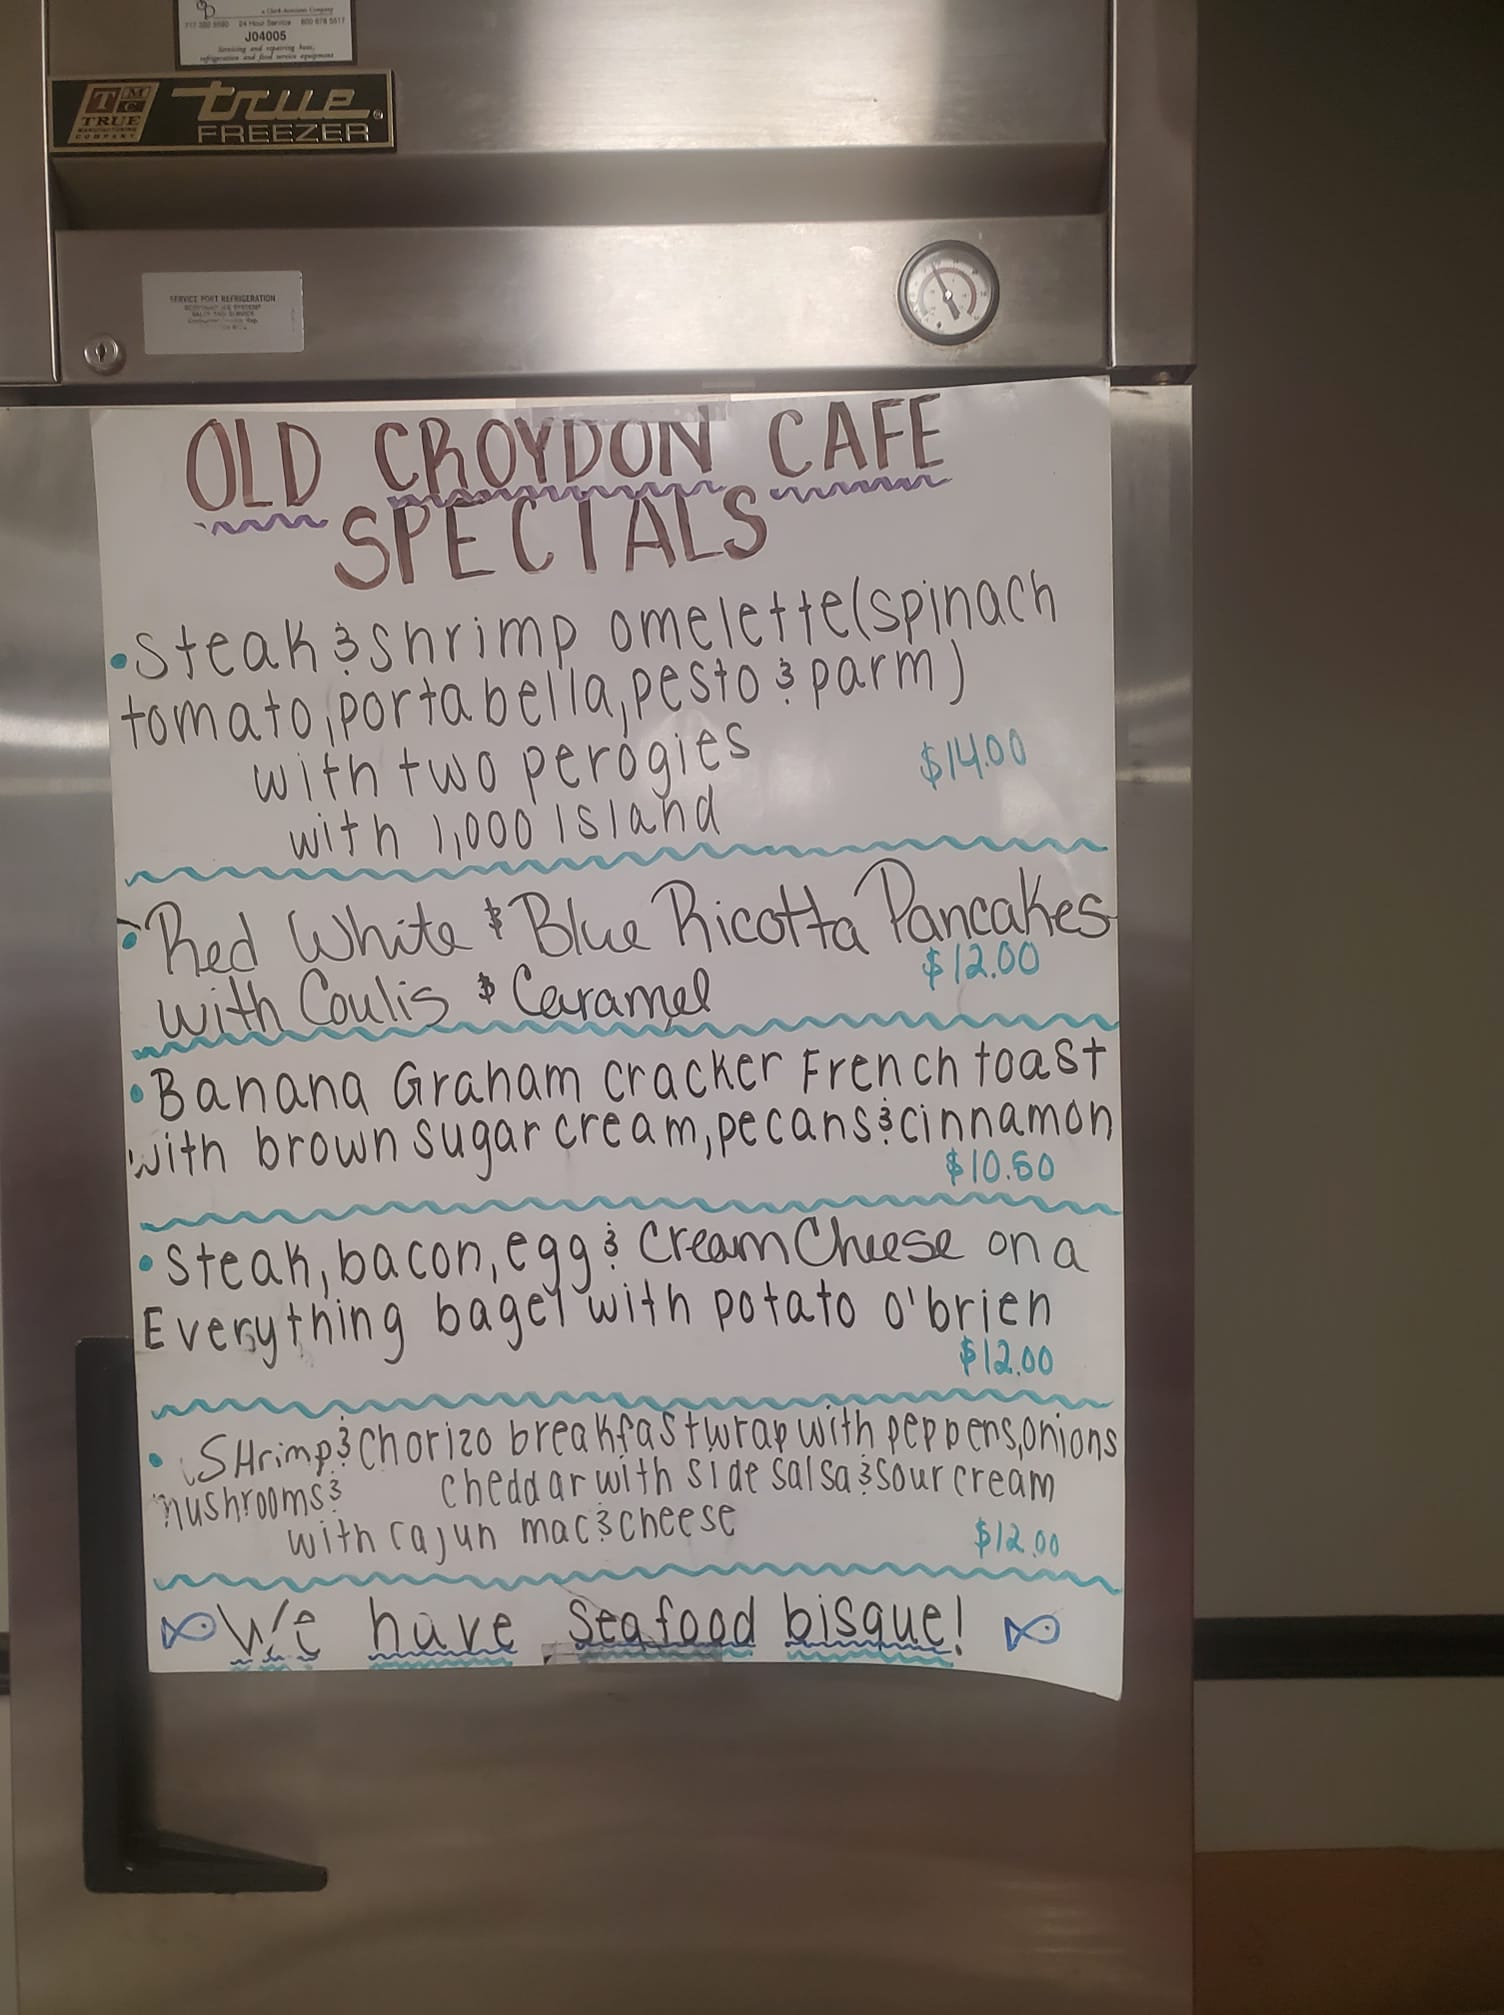 a Clark Associates Company
717 392 5580 24 Hour Service 800 678 5517
J04005
Servicing and repairing heat,
refrigeration and food service equipment
TMC
TRUE
MANUFACTURING
COMPANY
true®
FREEZER
SERVICE PORT REFRIGERATION
SALES AND SERVICE
OLD CROYDON CAFE
SPECIALS
•Steak & shrimp omelette (spinach
tomato, portabella, pesto & parm)
with two perogies
$14.00
with 1,000 Island
•Red White & Blue Ricotta Pancakes
$12.00
with Coulis & Caramel
•Banana Graham cracker French toast
with brown sugar cream, pecans & cinnamon
$10.50
•Steak, bacon, egg & Cream Cheese on a
Everything bagel with potato o'brien
$12.00
•SHrimp & Chorizo breakfast wrap with peppers, onions
mushrooms & cheddar with side salsa & sour cream
with cajun mac & cheese
$12.00
We have Seafood bisque!